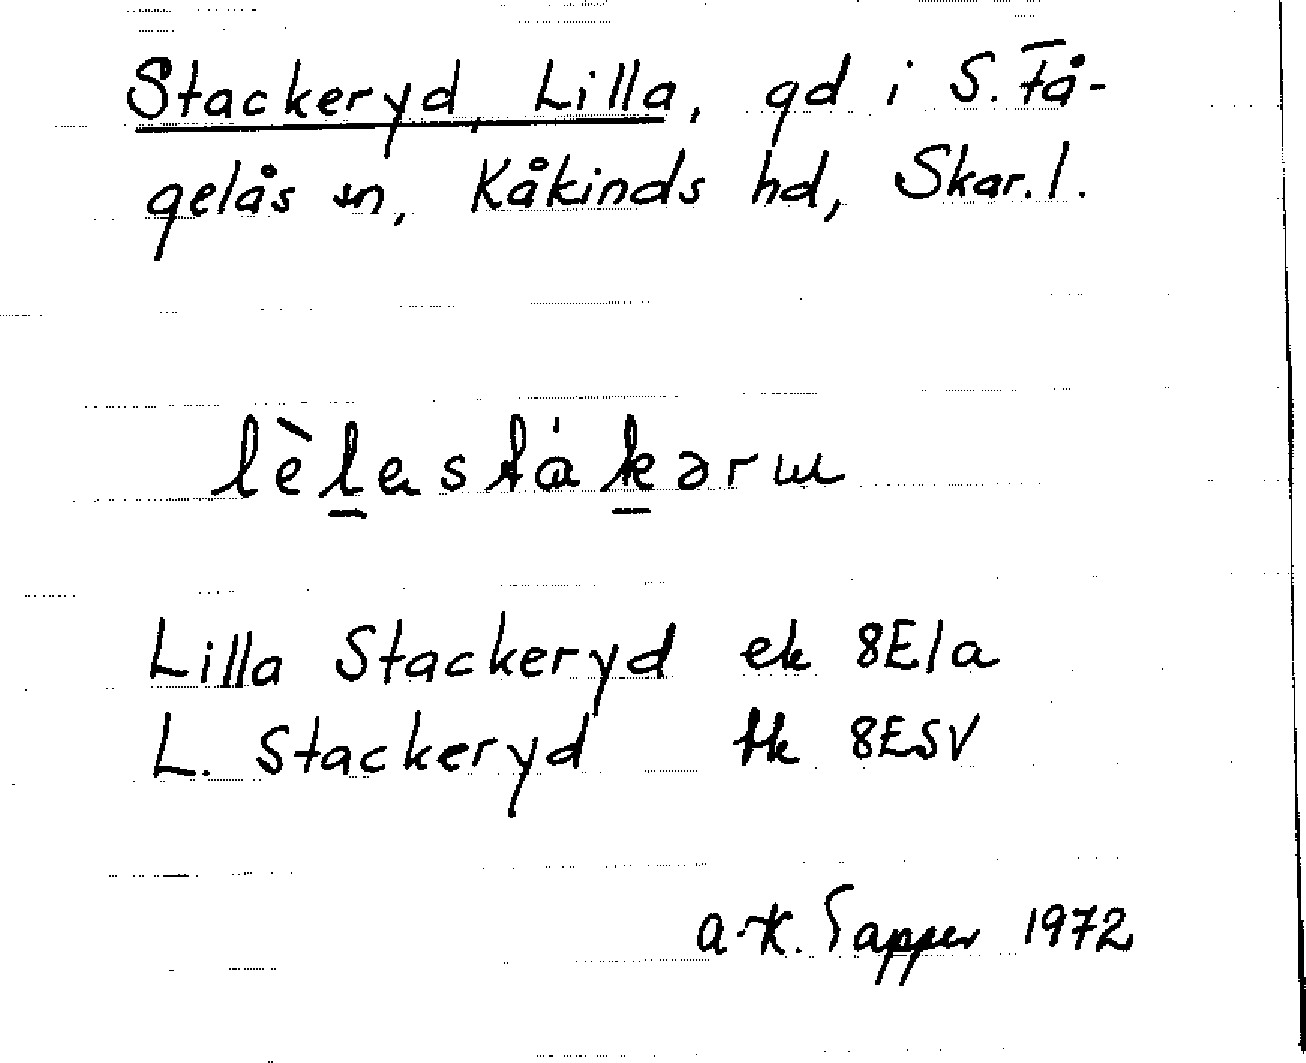 Stackeryd, Lilla, gd i S. Få-
gelås sn, Kåkinds hd, Skar. l.
Lilla Stackeryd ek 8E1a
L. Stackeryd tk 8ESV
A-K. Tapper 1972